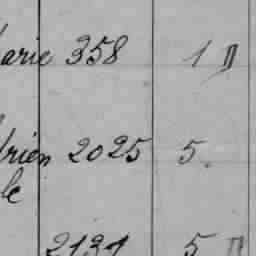 arie 358 1 "
rien 2025 5.
le
2131 5 "